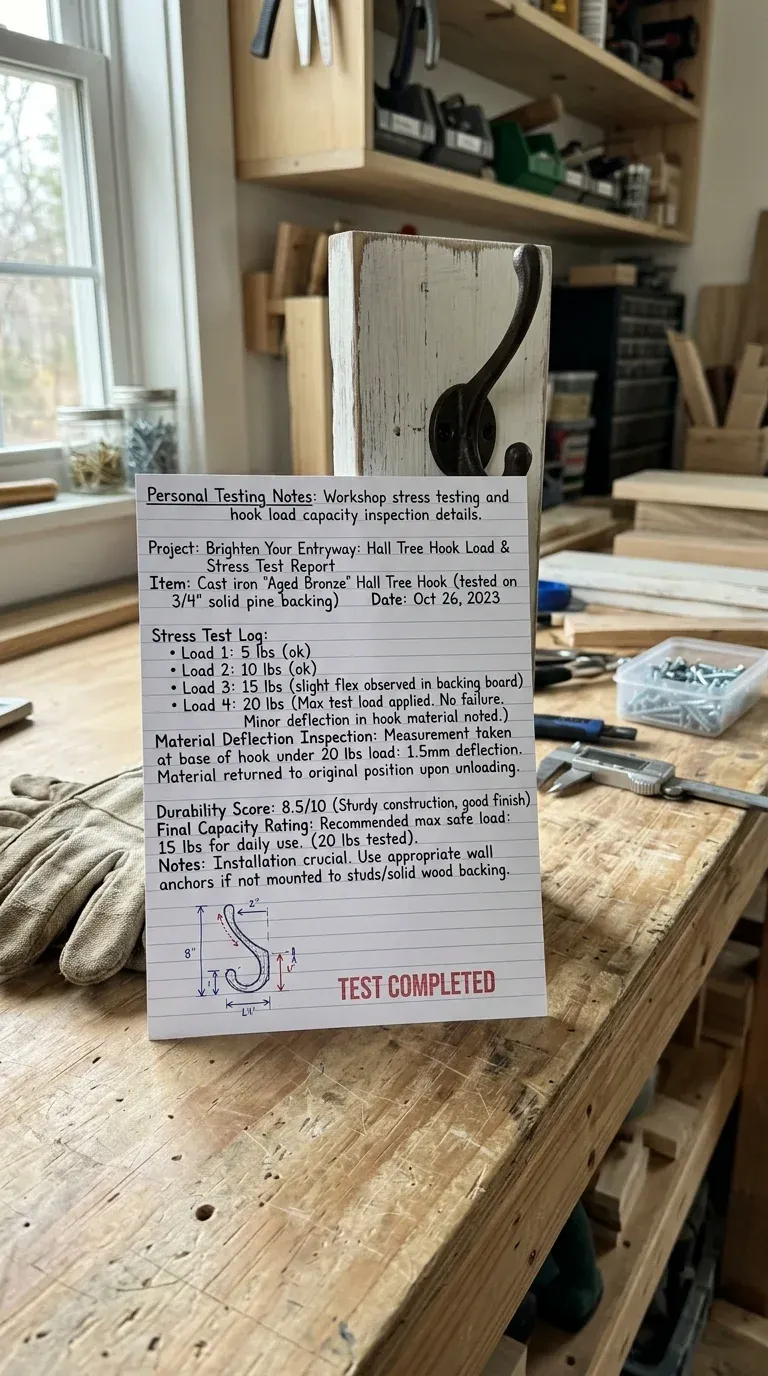 Personal Testing Notes: Workshop stress testing and
hook load capacity inspection details.
Project: Brighten Your Entryway: Hall Tree Hook Load &
Stress Test Report
Item: Cast iron "Aged Bronze" Hall Tree Hook (tested on
3/4" solid pine backing) Date: Oct 26, 2023
Stress Test Log:
• Load 1: 5 lbs (ok)
• Load 2: 10 lbs (ok)
• Load 3: 15 lbs (slight flex observed in backing board)
• Load 4: 20 lbs (Max test load applied. No failure.
Minor deflection in hook material noted.)
Material Deflection Inspection: Measurement taken
at base of hook under 20 lbs load: 1.5mm deflection.
Material returned to original position upon unloading.
Durability Score: 8.5/10 (Sturdy construction, good finish)
Final Capacity Rating: Recommended max safe load:
15 lbs for daily use. (20 lbs tested).
Notes: Installation crucial. Use appropriate wall
anchors if not mounted to studs/solid wood backing.
2"
8"
TEST COMPLETED